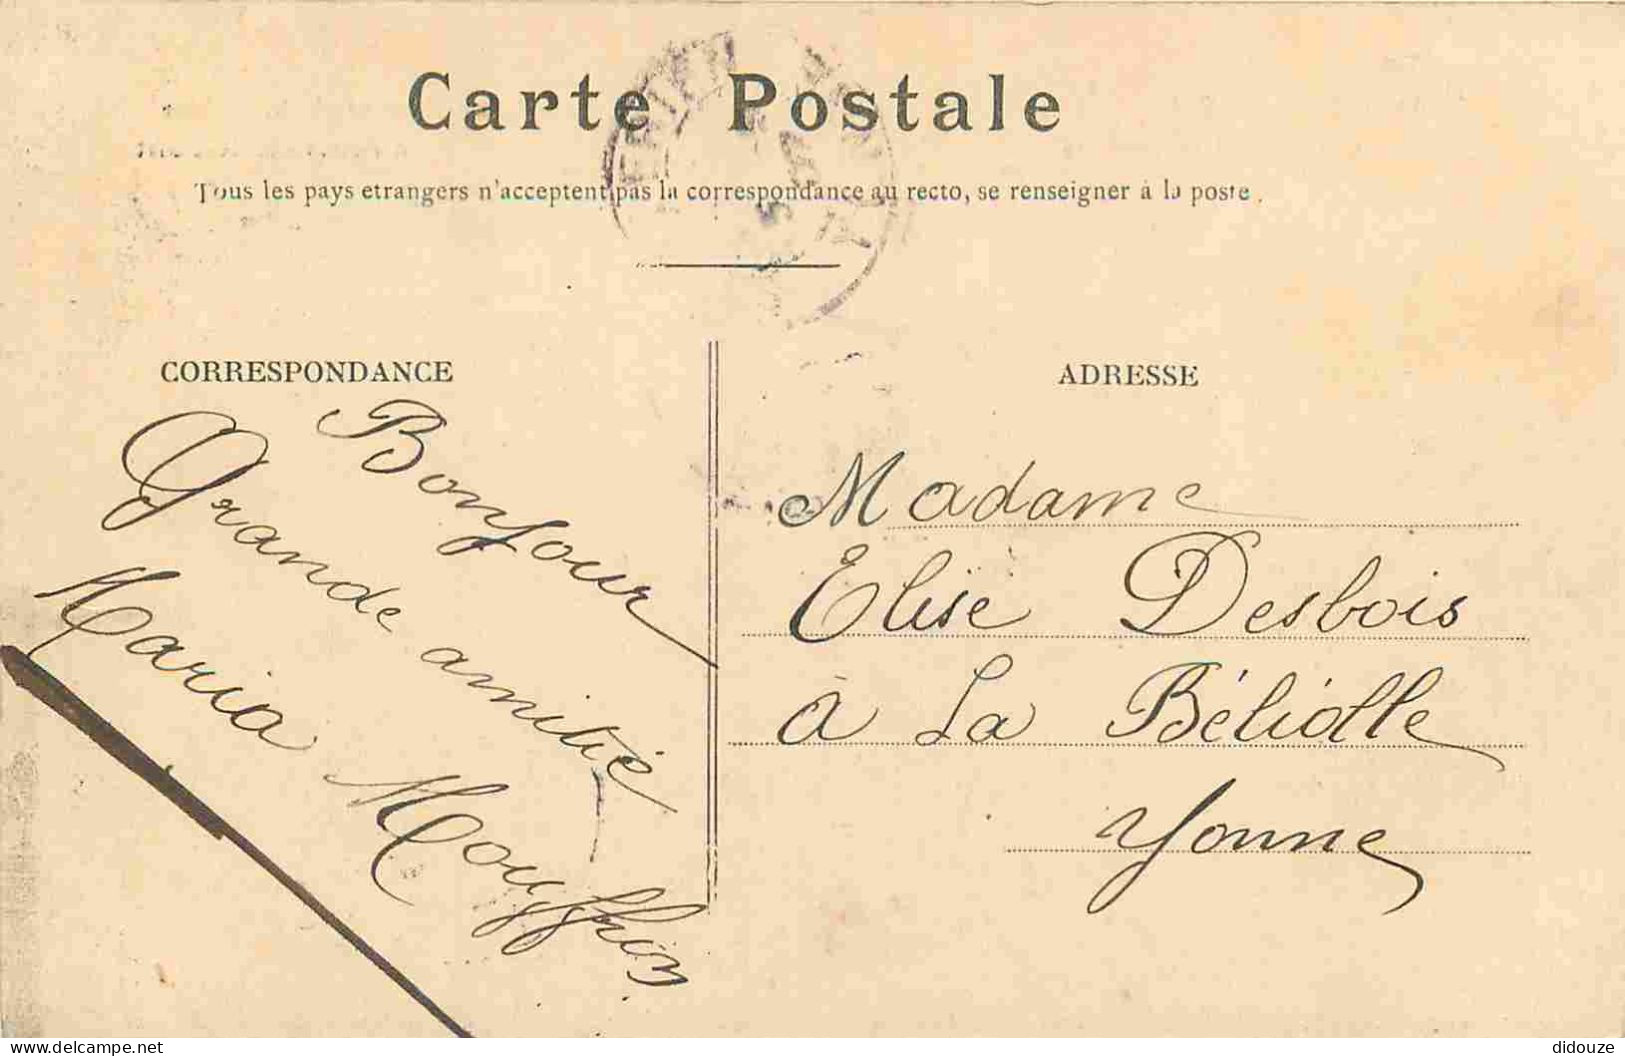 Carte Postale
Tous les pays etrangers n'acceptent pas la correspondance au recto, se renseigner à la poste.
CORRESPONDANCE
Bonjour
Grande amitié
Maria
ADRESSE
Madame
Elise Desbois
à La Béliolle
Yonne
delcampe.net
didouze